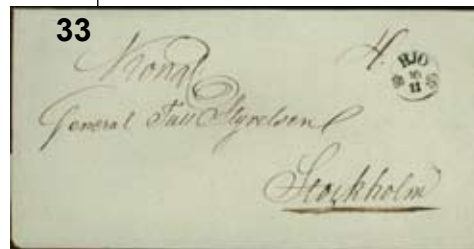 33
H.
HJO
16
11
General Tull Styrelsen
Stockholm